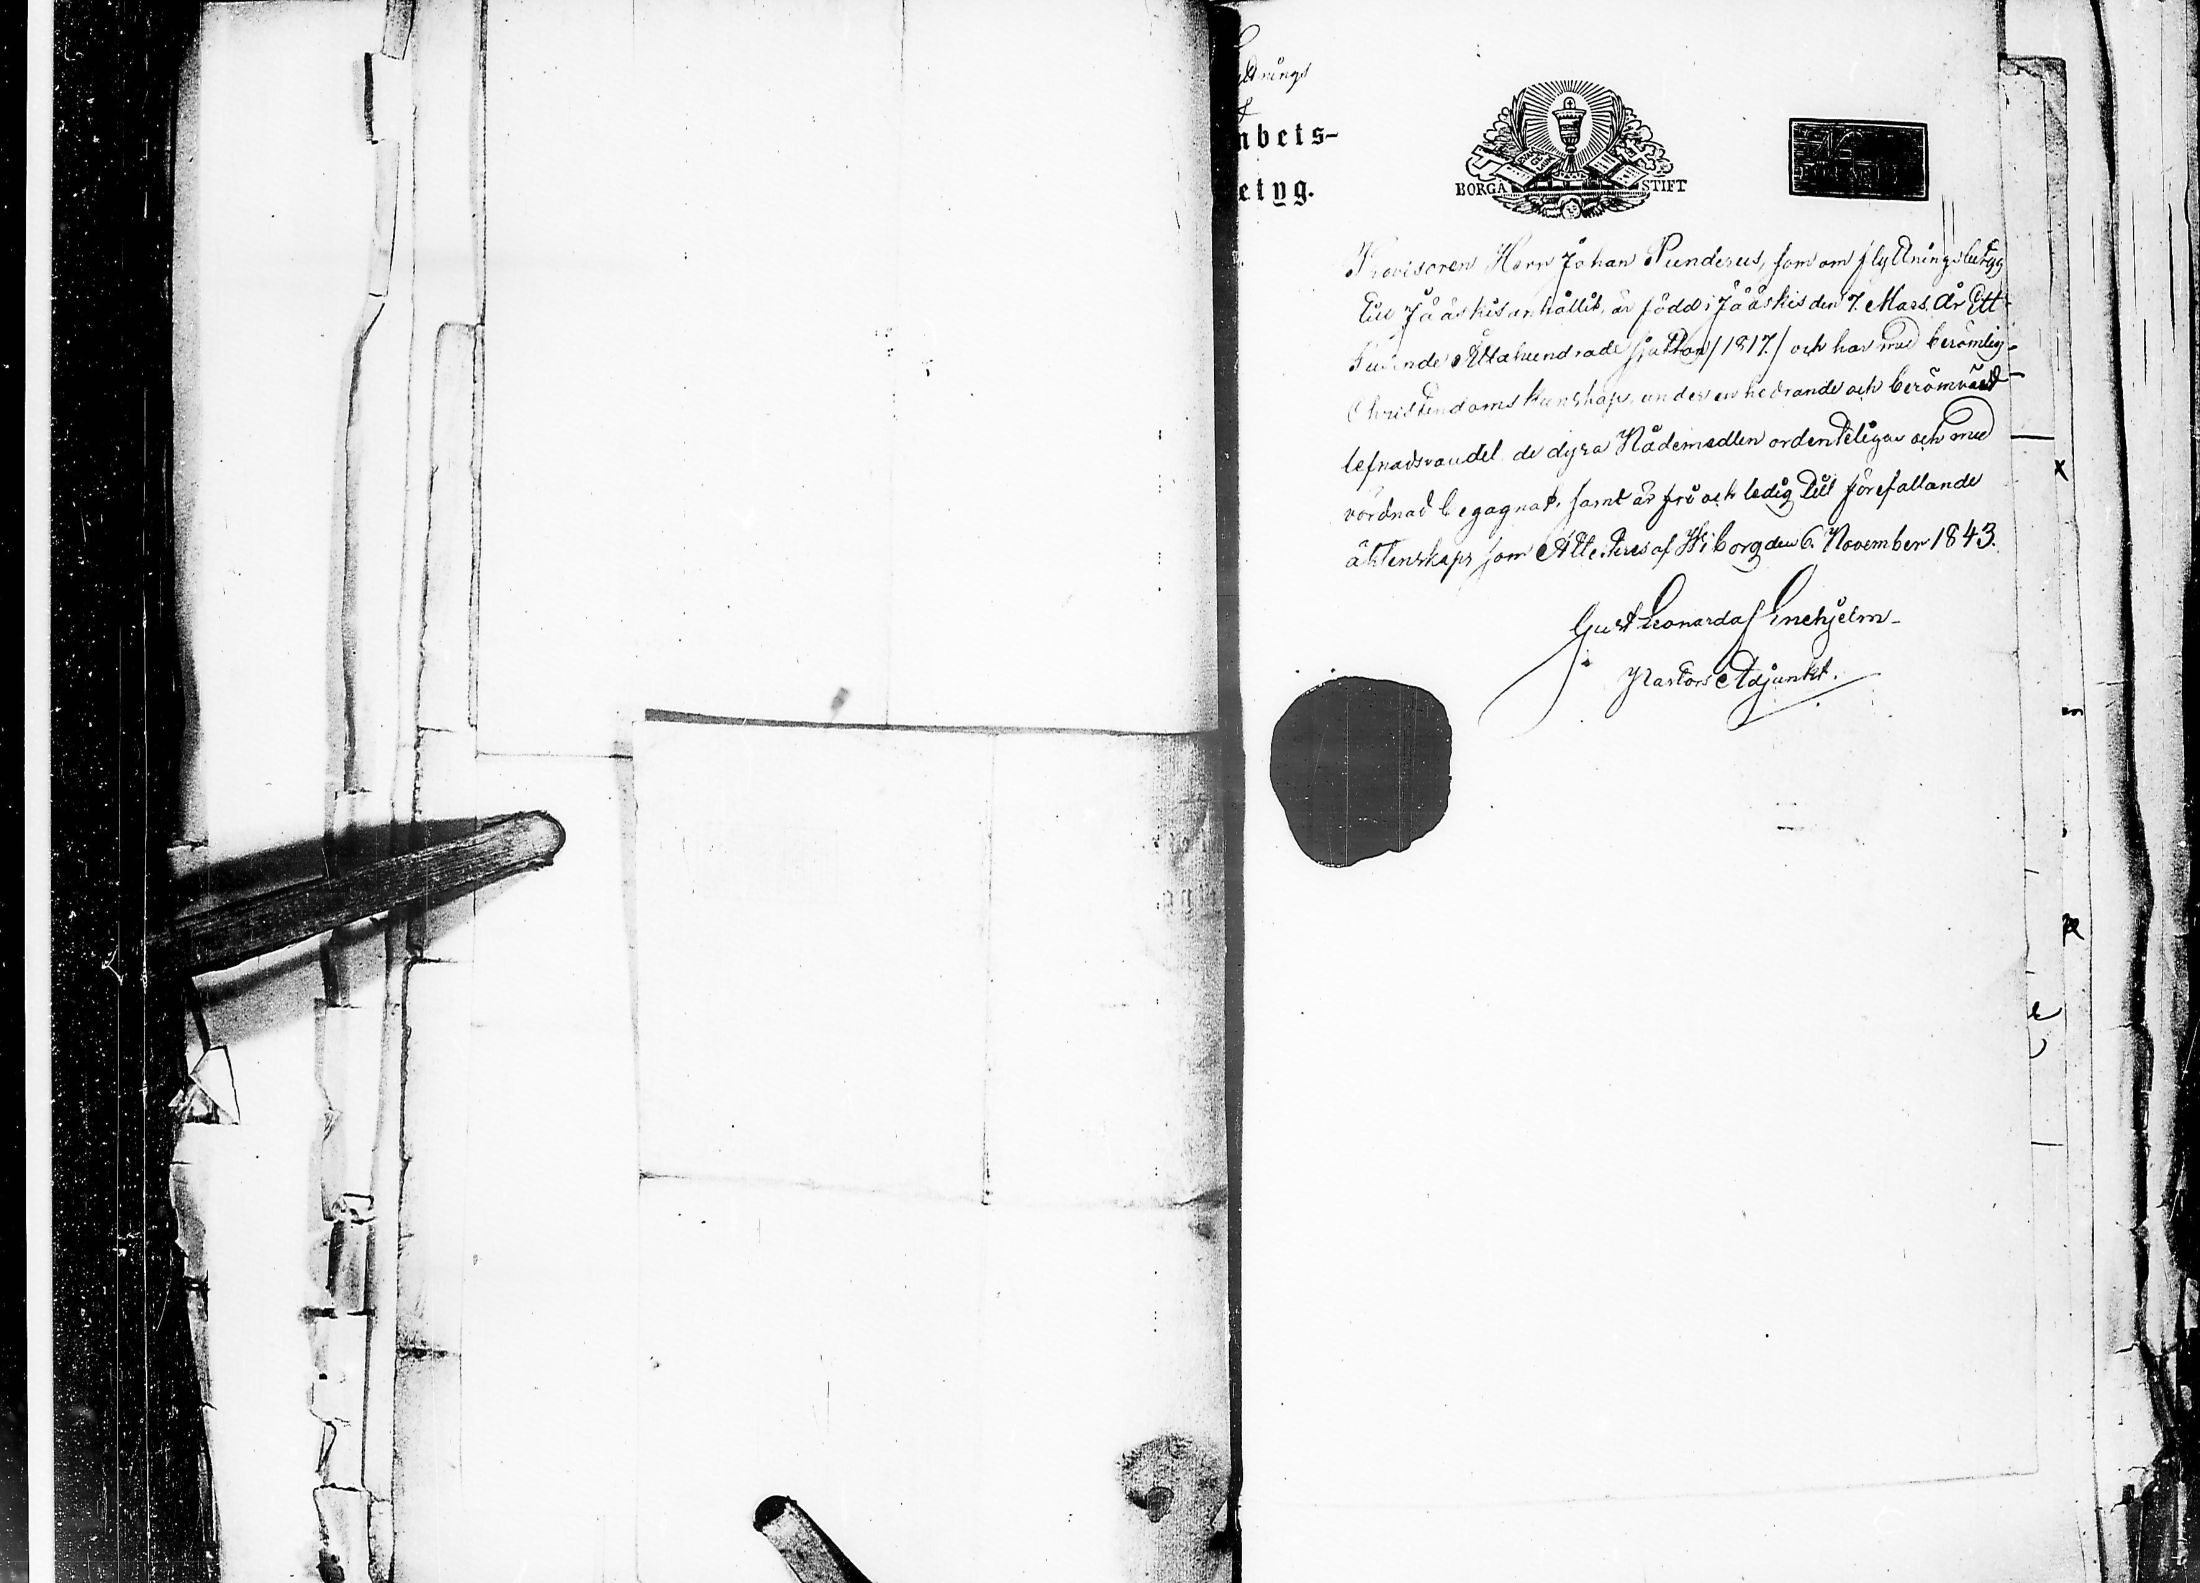 nbets-
etyg.
BORGÅ STIFT
Provisoren Herr Johan Punderus, som om flyttningsbetyg
till Jääskis anhållit, är född i Jääskis den 7. Mars År Ett
tusende Åttahundrade sjutton /1817./ och har med berömlig
Christendoms kunskap, under en hedrande och berömvärd
lefnadsvandel de dyra Nådemedlen ordenteligen och med
vördnad begagnat, samt är fri och ledig till förefallande
äktenskap; som Attesteres af Wiborg den 6. November 1843.
Gust Leonard af Enehjelm
Pastors Adjunkt.